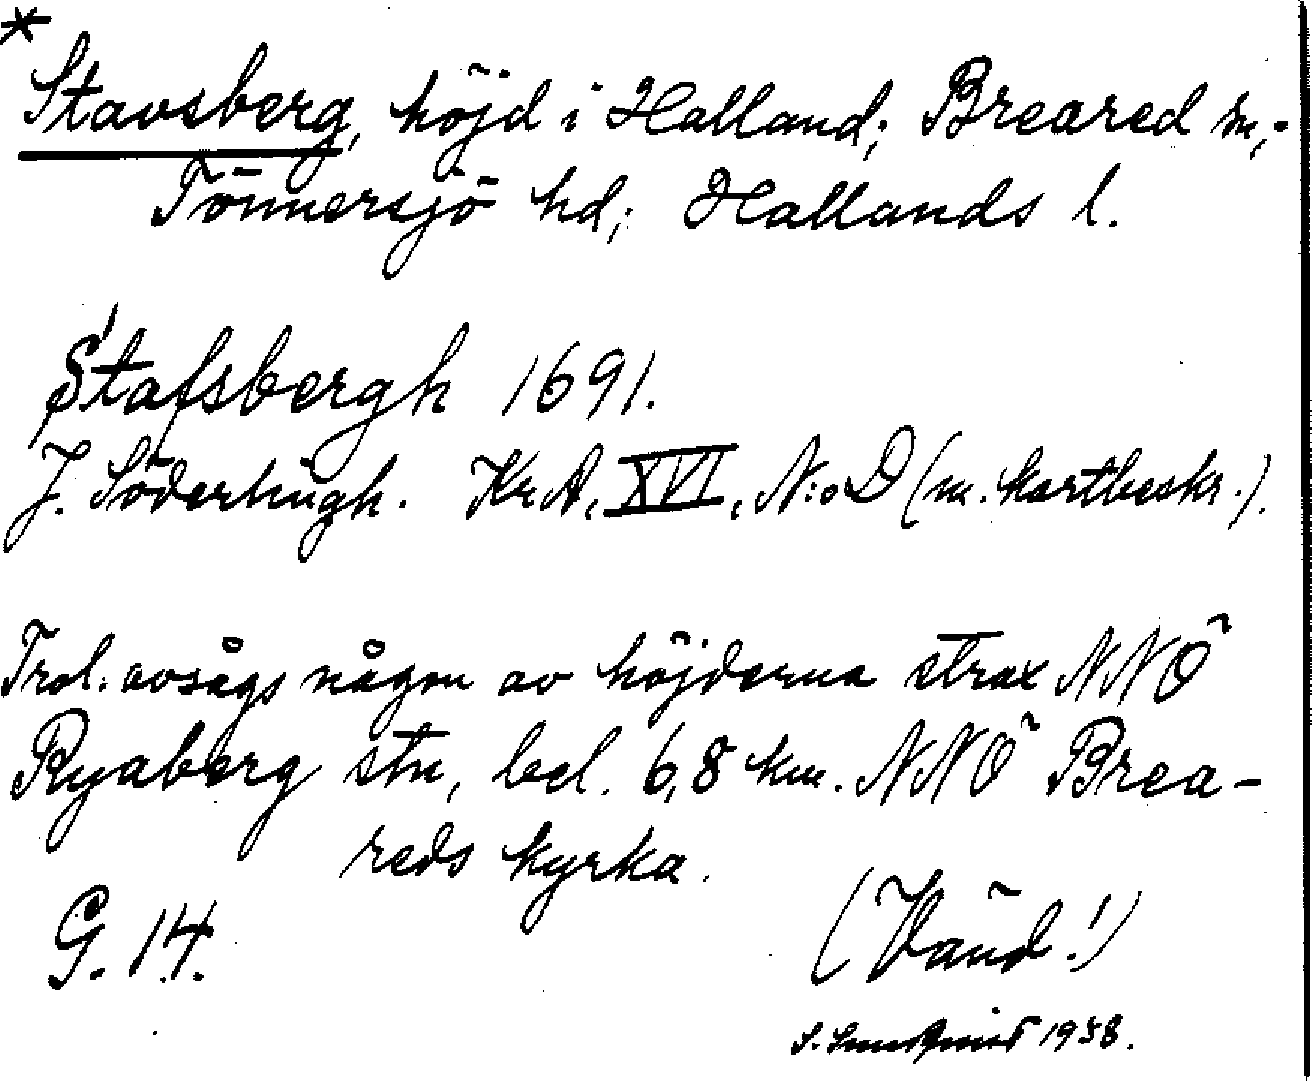 *
Stavsberg, höjd i Halland; Breared sn,
Tönnersjö hd; Hallands l.
Stafsbergh 1691.
J. Söderhügh. Kr.A, XVI, N:o D (m. kartbeskr.).
Trol. avsågs någon av höjderna strax NNÖ
Ryaberg stn, bel. 6,8 km. NNÖ Brea-
reds kyrka.
G. 14.
(Vänd!)
S. 1958.